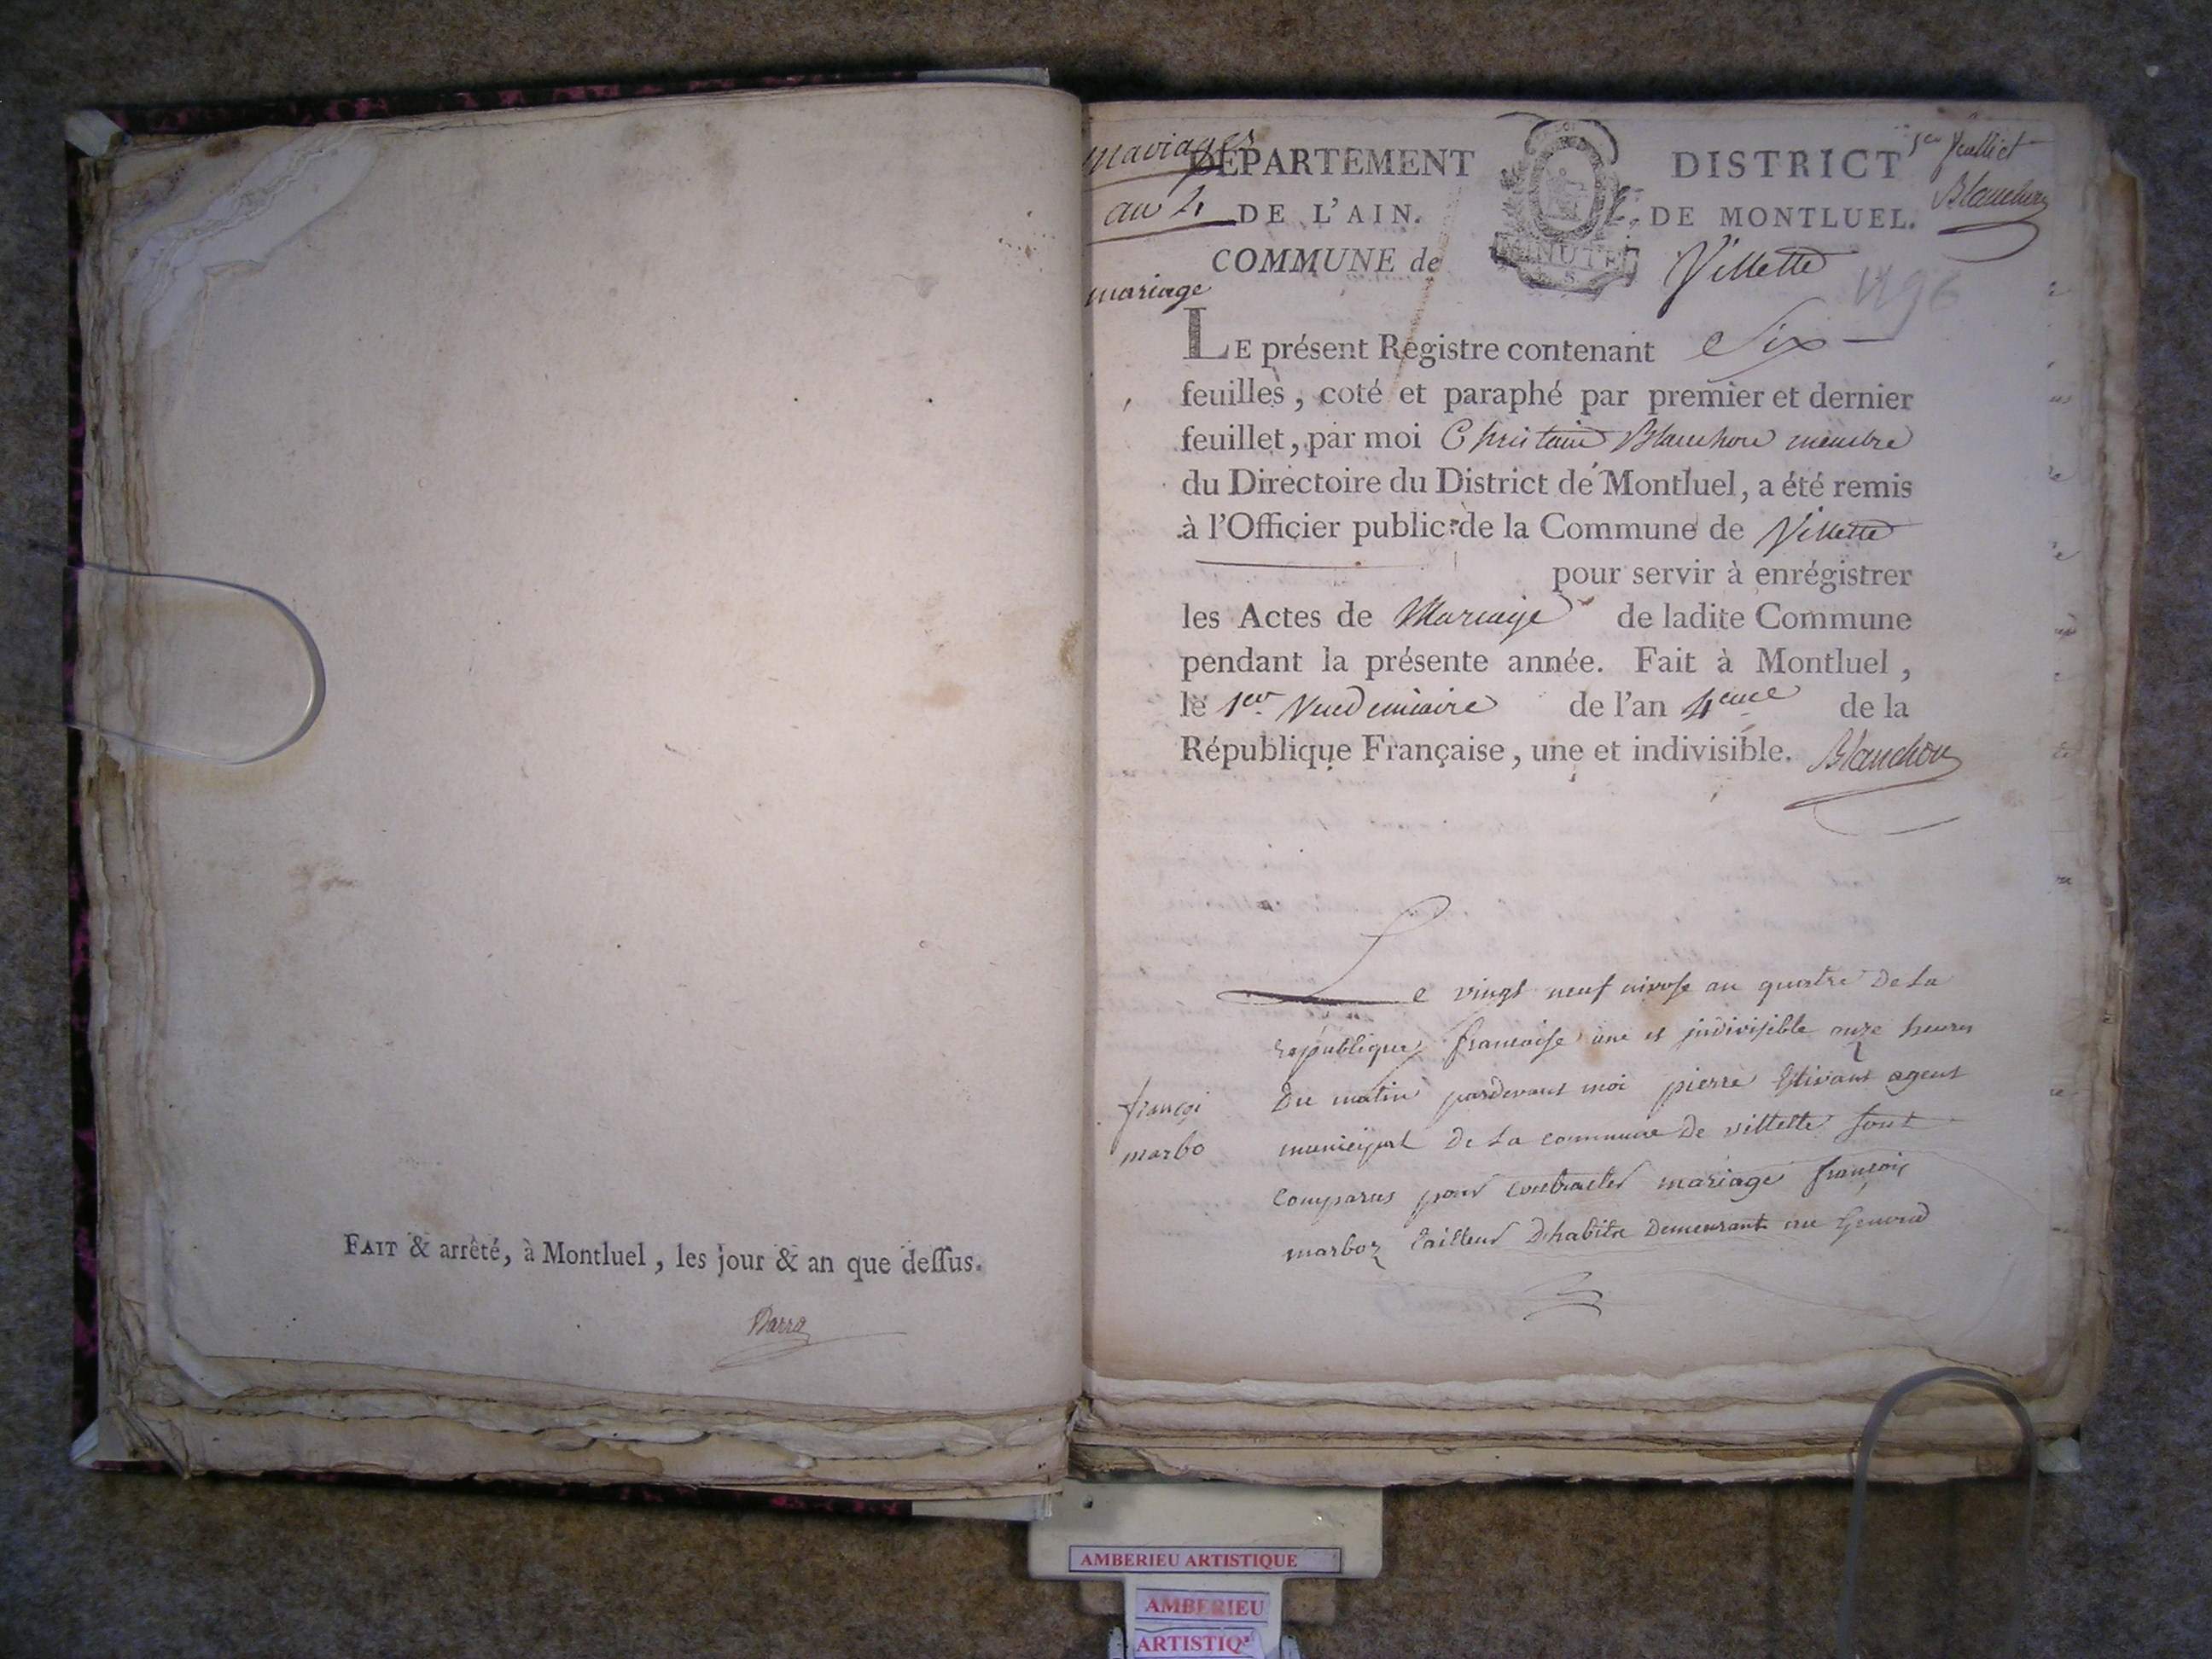 FAIT & arrêté, à Montluel, les jour & an que deſſus.
Barra
mariages
an 4
mariage
DÉPARTEMENT
DE L'AIN.
COMMUNE de
MINUTE
DISTRICT
DE MONTLUEL.
Villette
1er feuillet
Blanchon
LE présent Registre contenant Six
feuilles, coté et paraphé par premier et dernier
feuillet, par moi Blanchon membre
du Directoire du District de Montluel, a été remis
à l'Officier public de la Commune de Villette
pour servir à enrégistrer
les Actes de Mariage de ladite Commune
pendant la présente année. Fait à Montluel,
le 1er Vendemiaire de l'an 4eme de la
République Française, une et indivisible. Blanchon
françoi
marbo
Le vingt neuf nivose an quatre De La
republique francaise une et indivisible onze heures
Du matin pardevant moi pierre Estivant agent
municipal De La commune De villette sont
Comparus pour contracter mariage françois
marboz tailleur D'habits Demeurant au
AMBERIEU ARTISTIQUE
AMBERIEU
ARTISTIQ